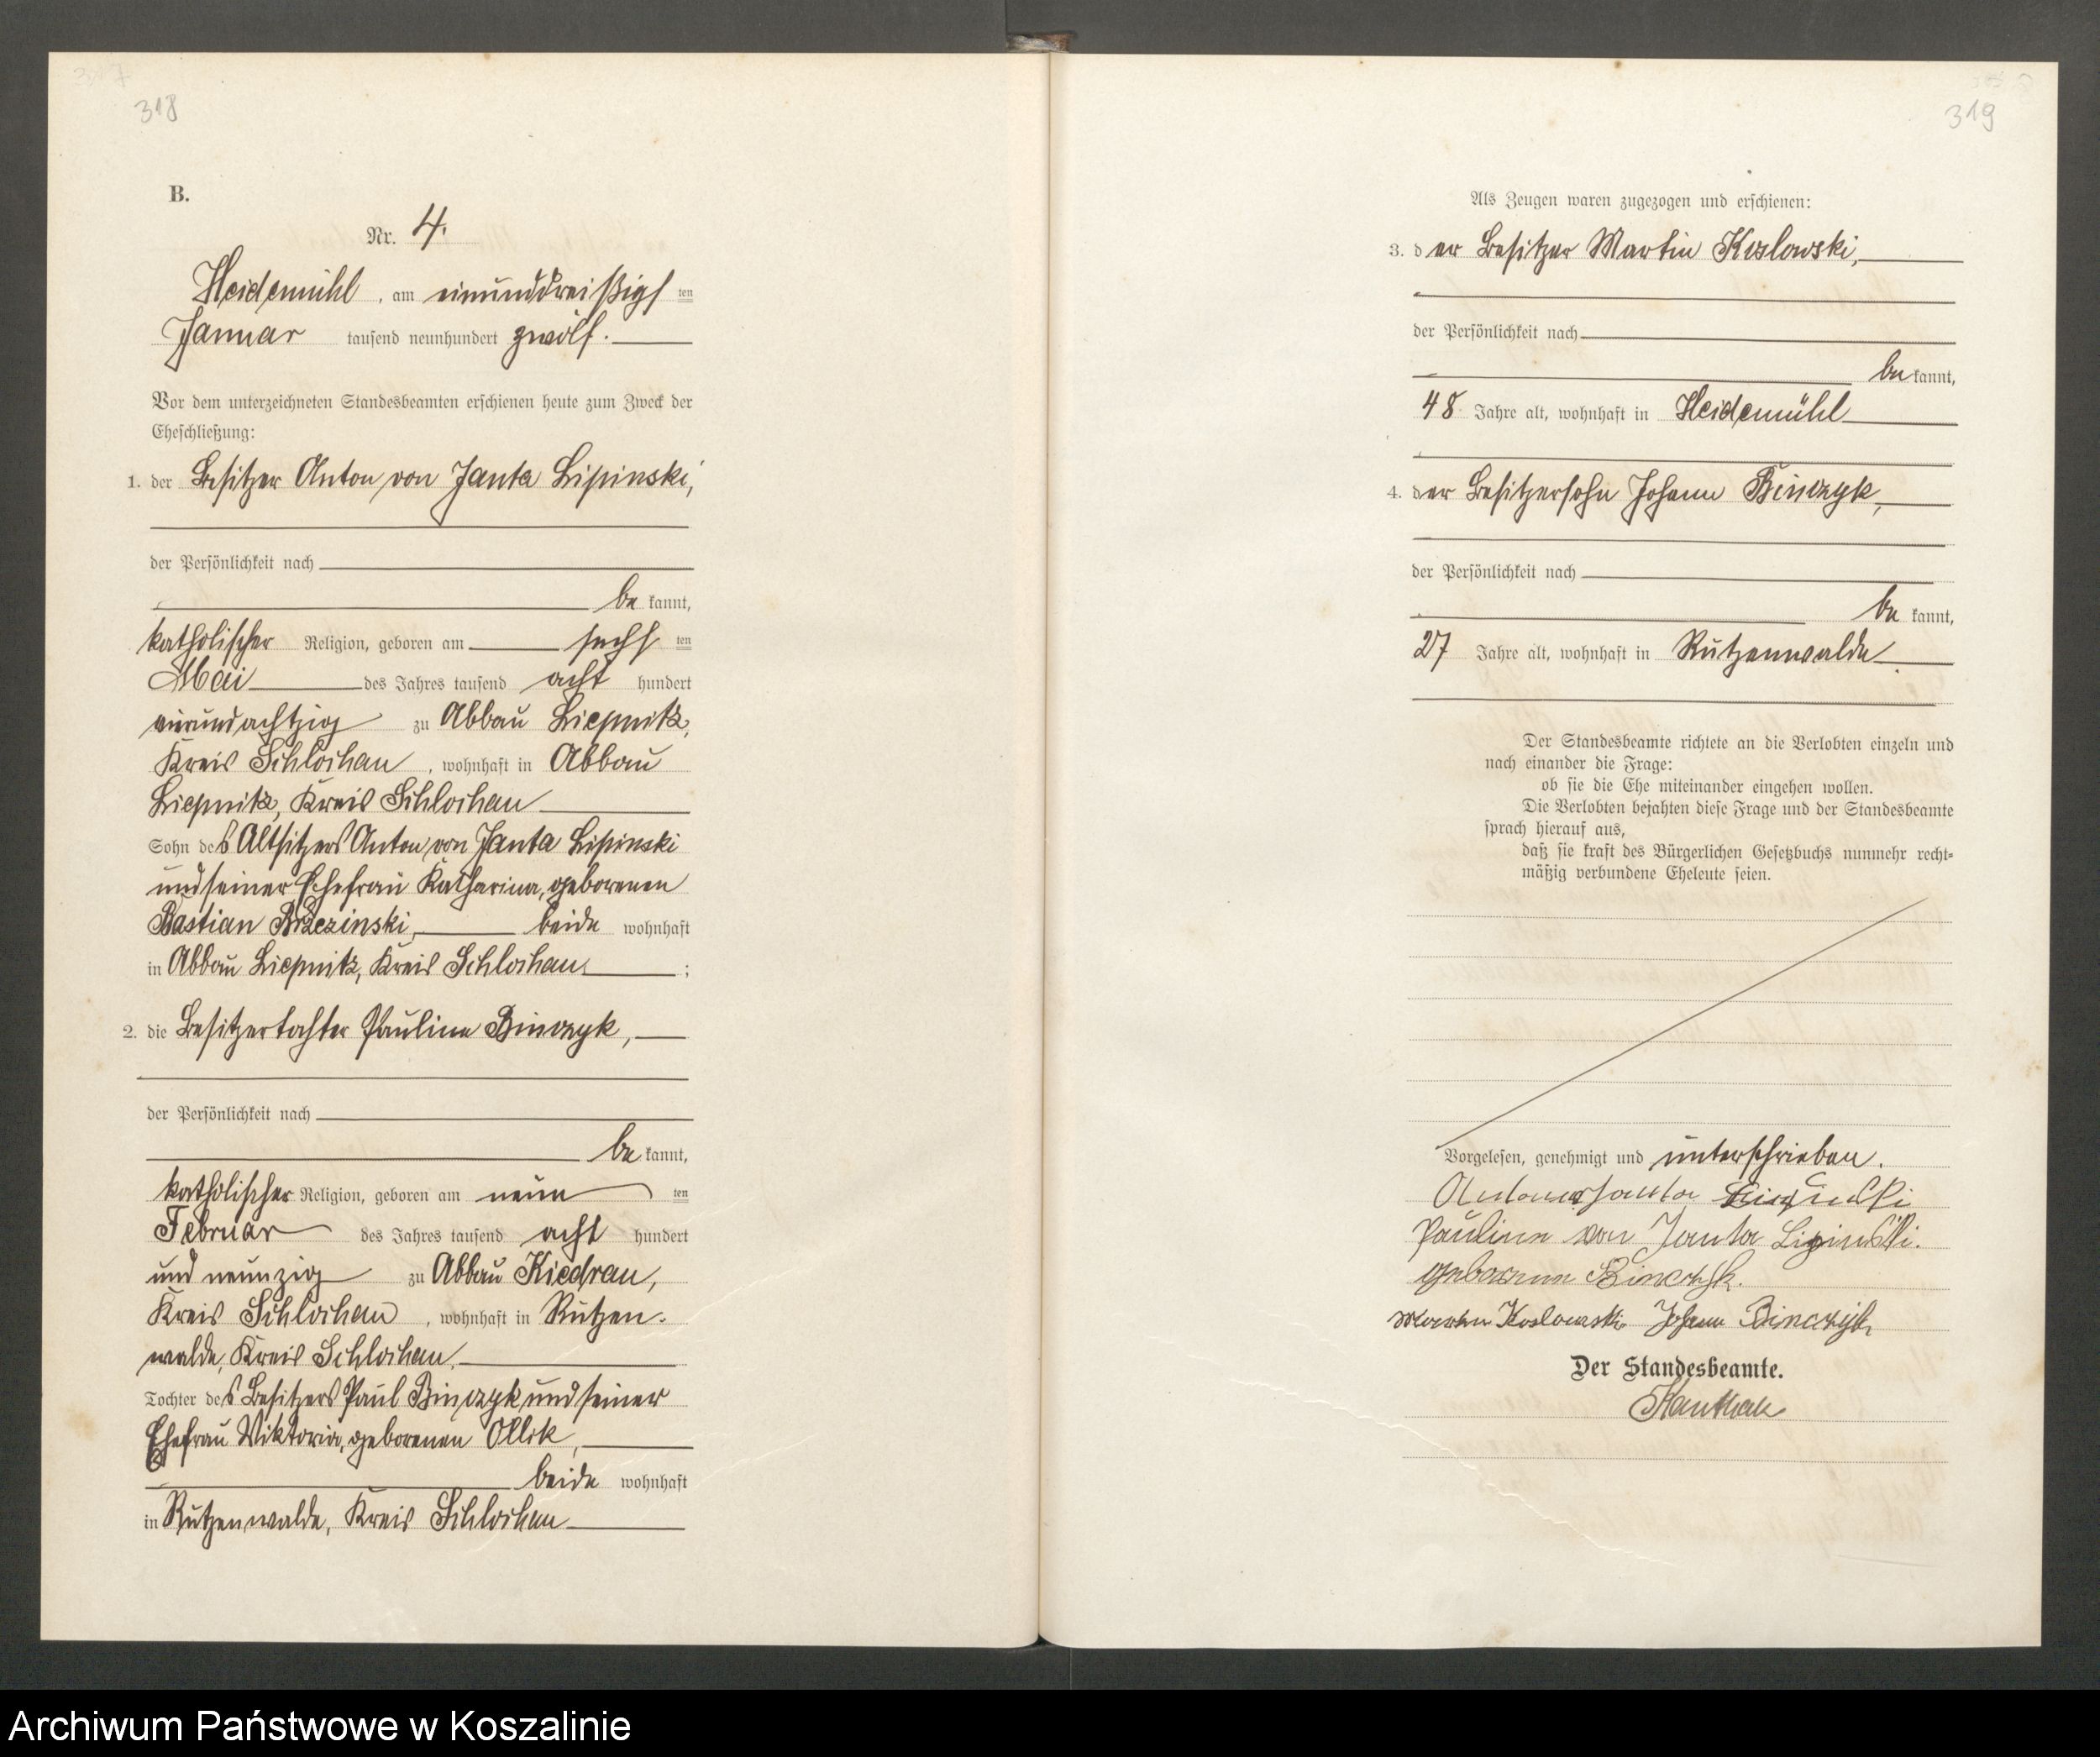 318
B.
Nr. 4.
Heidemühl, am einunddreißigsten
Januar tausend neunhundert zwölf.
Vor dem unterzeichneten Standesbeamten erschienen heute zum Zweck der
Eheschließung:
1. der Besitzer Anton von Janta Lipinski,
der Persönlichkeit nach
bekannt,
katholischer Religion, geboren am sechsten
Mai des Jahres tausend acht hundert
vierundachtzig zu Abbau Liepnitz,
Kreis Schlochau, wohnhaft in Abbau
Liepnitz, Kreis Schlochau
Sohn des Altsitzers Anton von Janta Lipinski
und seiner Ehefrau Katharina, geborenen
Bastian Brzezinski, beide wohnhaft
in Abbau Liepnitz, Kreis Schlochau;
2. die Besitzertochter Pauline Binczyk,
der Persönlichkeit nach
bekannt,
katholischer Religion, geboren am neunten
Februar des Jahres tausend acht hundert
und neunzig zu Abbau Kiedrau,
Kreis Schlochau, wohnhaft in Rutzen-
walde, Kreis Schlochau,
Tochter des Besitzers Paul Binczyk und seiner
Ehefrau Viktoria, geborenen Ollik,
beide wohnhaft
in Rutzenwalde, Kreis Schlochau
319
Als Zeugen waren zugezogen und erschienen:
3. der Besitzer Martin Koslowski,
der Persönlichkeit nach
bekannt,
48 Jahre alt, wohnhaft in Heidemühl
4. der Besitzersohn Johann Binczyk,
der Persönlichkeit nach
bekannt,
27 Jahre alt, wohnhaft in Rutzenwalde
Der Standesbeamte richtete an die Verlobten einzeln und
nach einander die Frage:
ob sie die Ehe miteinander eingehen wollen.
Die Verlobten bejahten diese Frage und der Standesbeamte
sprach hierauf aus,
daß sie kraft des Bürgerlichen Gesetzbuchs nunmehr recht-
mäßig verbundene Eheleute seien.
Vorgelesen, genehmigt und unterschrieben.
Anton v Janta Lipinski
Pauline von Janta Lipinski.
geborene Binczyk.
Martin Koslowski Johann Binczyk
Der Standesbeamte.
Archiwum Państwowe w Koszalinie